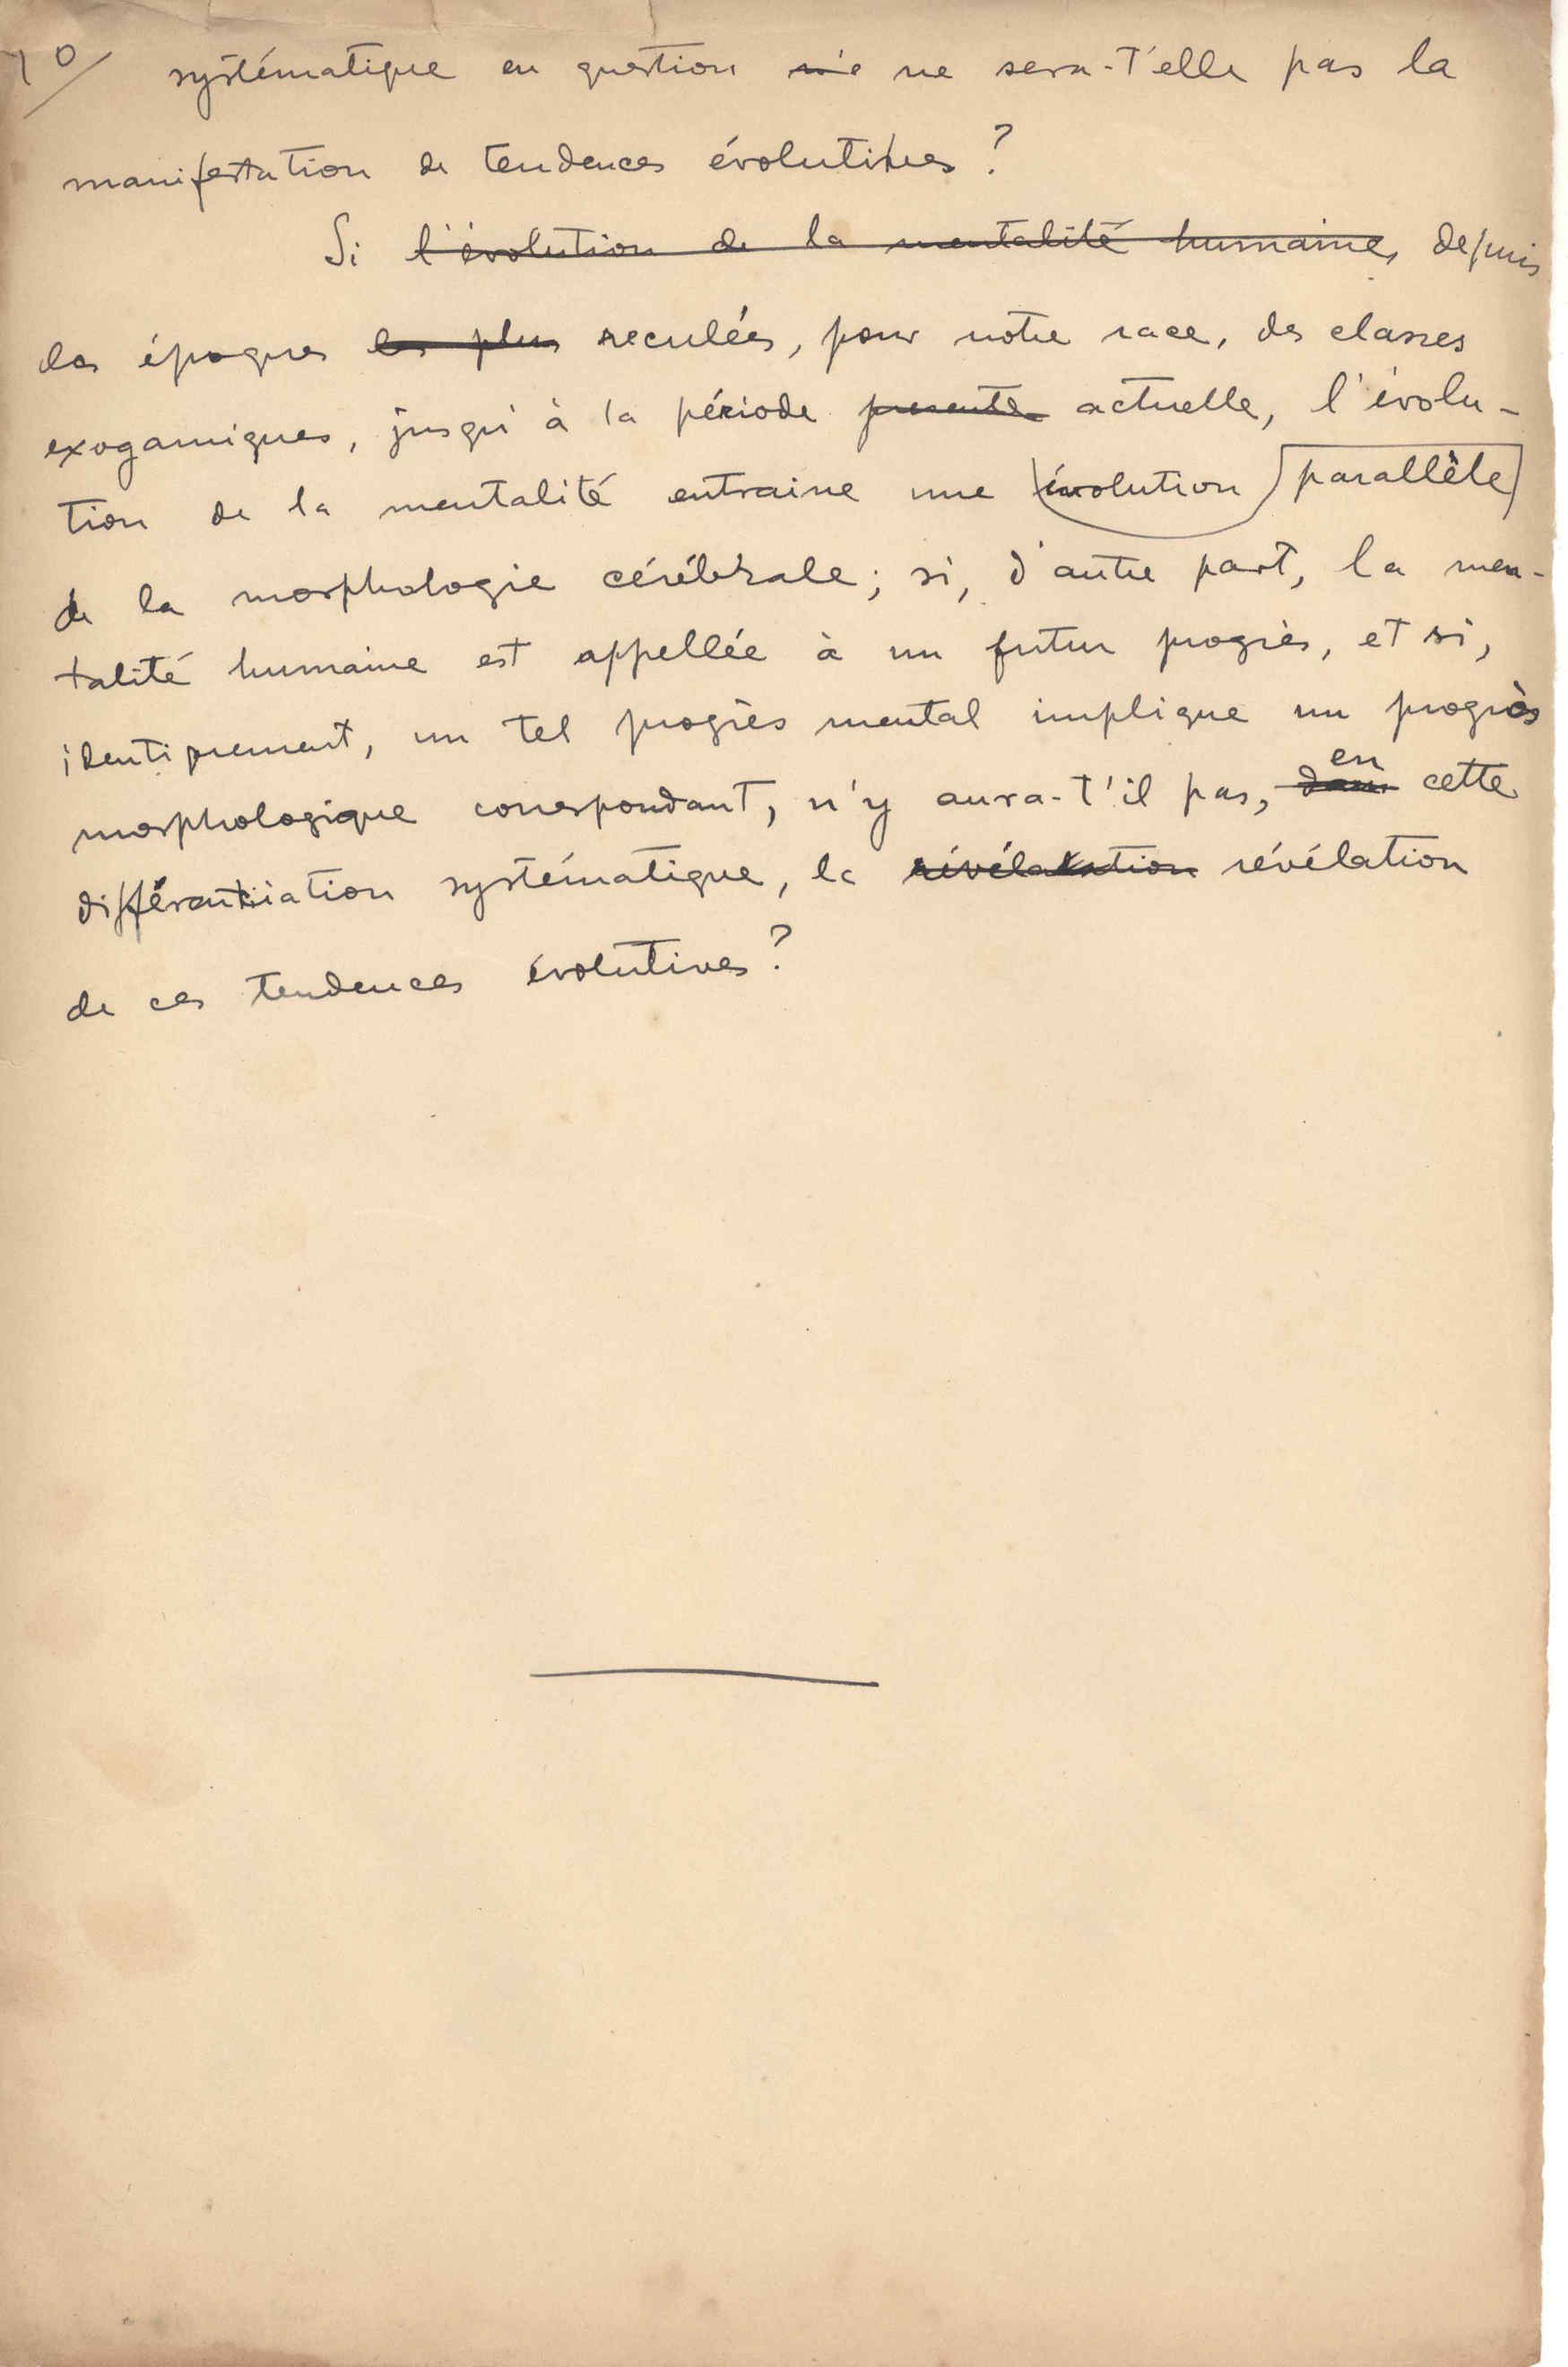 10/ systématique en question ne sera-t'elle pas la
manifestation de tendences évolutives ?
Si l'évolution de la mentalité humaine, depuis
des époques les plus reculées, pour notre race, des classes
exogamiques, jusqu'à la période presente actuelle, l'évolu-
tion de la mentalité entraine une évolution parallèle
de la morphologie cérébrale ; si, d'autre part, la men-
talité humaine est appellée à un futur progrès, et si,
identiquement, un tel progrès mental implique un progrès
en
morphologique correspondant, n'y aura-t'il pas, dans cette
différentiation systématique, la révélation
de ces tendences évolutives ?